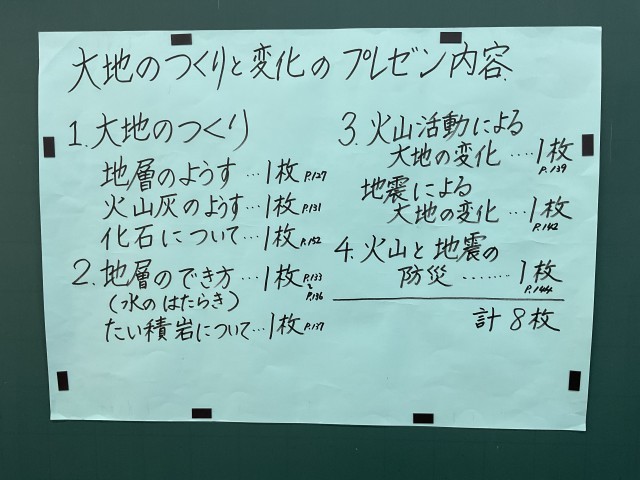 大地のつくりと変化のプレゼン内容
1. 大地のつくり
地層のようす…1枚 P.127
火山灰のようす…1枚 P.131
化石について…1枚 P.132
2. 地層のでき方…1枚 P.133〜P.136
(水のはたらき)
たい積岩について…1枚 P.137
3. 火山活動による
大地の変化……1枚
P.139
地震による
大地の変化…1枚
P.142
4. 火山と地震の
防災………1枚
P.144
計8枚